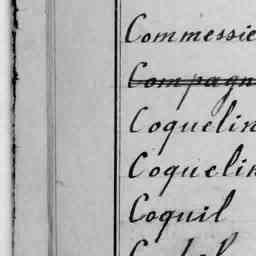 Commessie
Compagn
Coquelin
Coquelin
Coquil